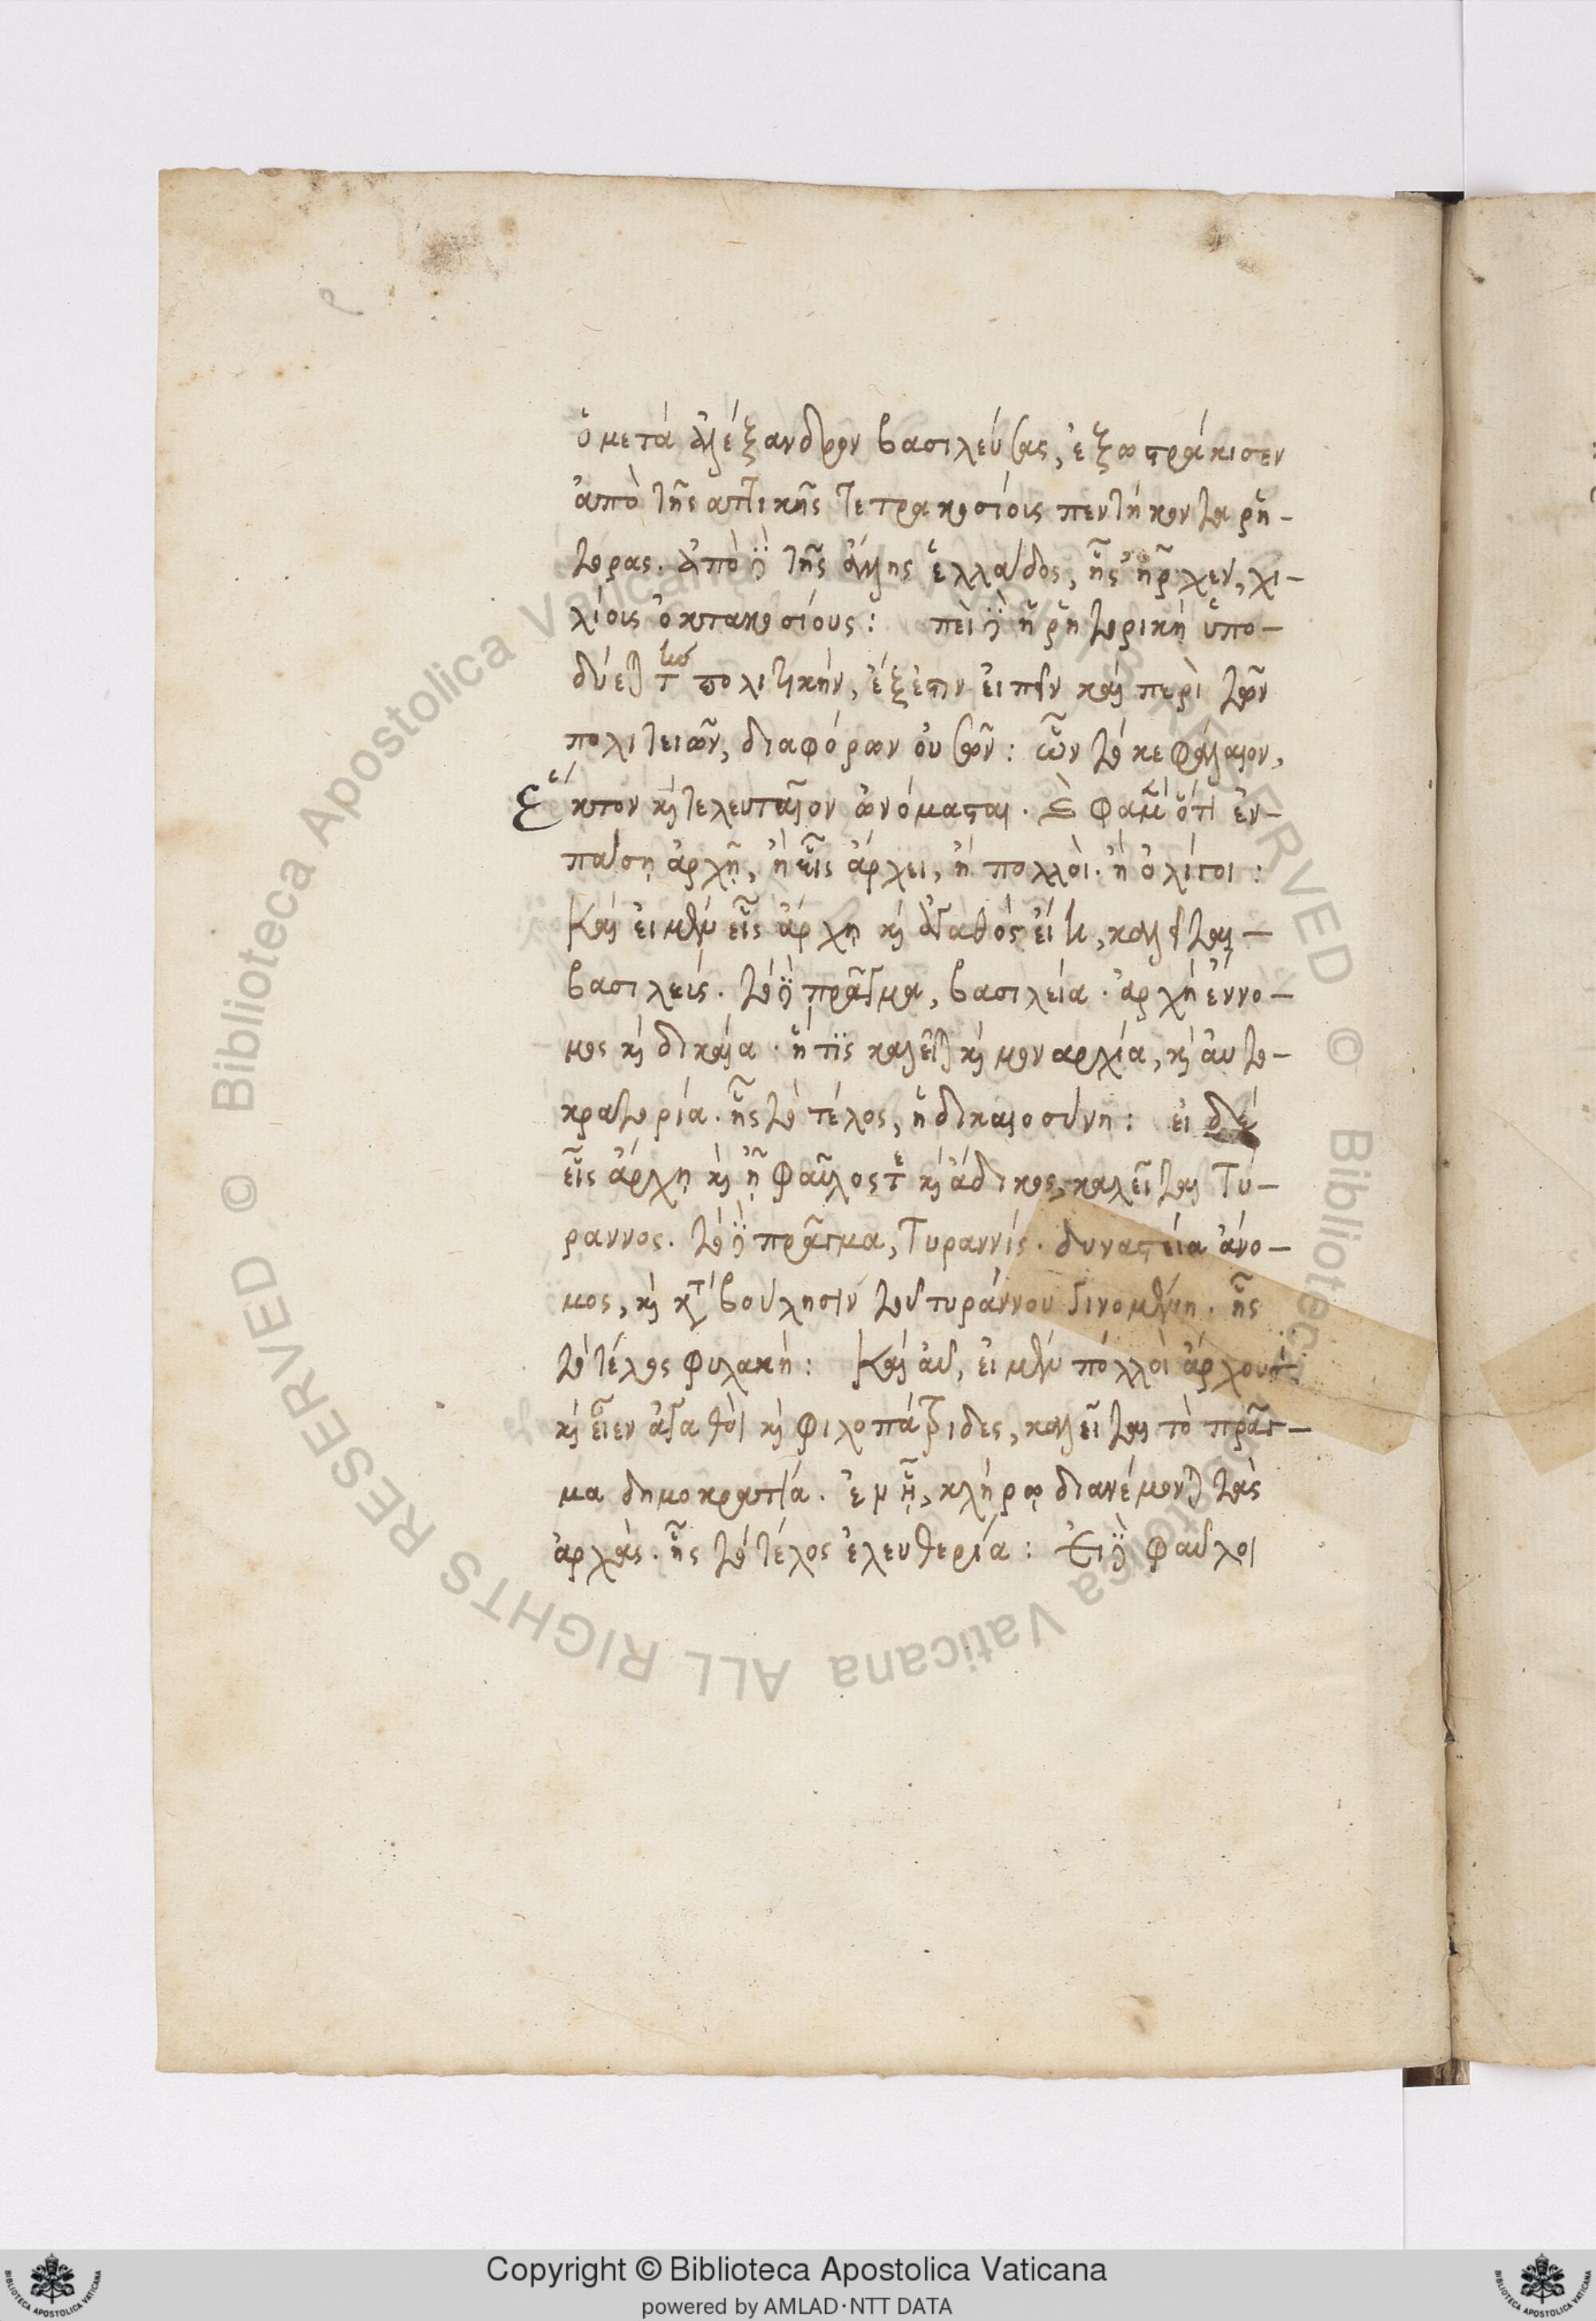 ὁ μετὰ ἀλέξανδρον βασιλεύσας, ἐξωστράκισεν
ἀπὸ τῆς ἀττικῆς τετρακοσίοις πεντήκοντα ῥή-
τορας. ἀπὸ δὲ τῆς ἄλλης ἑλλάδος, ἧς ἦρχεν, χι-
λίοις ὀκτακοσίους: ἡ ῥητορικὴ ὑπο-
πολιτικήν, ἔξεστιν εἰπεῖν καὶ περὶ τῶν
πολιτειῶν, διαφόρων οὐσῶν: ὧν τὸ κεφάλαιον,
ἕκτον καὶ τελευταῖον ὠνόμασται. φαμὲν ὅτι ἐν-
πάσῃ ἀρχῇ, ἢ εἷς ἄρχει, ἢ πολλοὶ. ἢ ὀλίγοι:
Καὶ εἰ μὲν εἷς ἄρχῃ καὶ ἀγαθὸς εἴη, καλεῖται-
βασιλεύς. τὸ δὲ πρᾶγμα, βασιλεία. ἀρχὴ ἔννο-
μος καὶ δικαία. ἥτις καλεῖται καὶ μοναρχία, καὶ αὐτο-
κρατορία. ἧς τὸ τέλος, ἡ δικαιοσύνη: εἰ δὲ
εἷς ἄρχῃ καὶ ᾖ φαῦλός τε καὶ ἄδικος, καλεῖται τύ-
ραννος. τὸ δὲ πρᾶγμα, τυραννίς. δυναστεία ἄνο-
μος, καὶ κατὰ βούλησιν τοῦ τυράννου γινομένη. ἧς
τὸ τέλος φυλακή: Καὶ αὖ, εἰ μὲν πολλοὶ ἄρχουσι,
καὶ εἶεν ἀγαθοὶ καὶ φιλοπάτριδες, καλεῖται τὸ πρᾶγ-
μα δημοκρατία. ἐν ᾗ, κλήρῳ διανέμονται τὰς
ἀρχὰς. ἧς τὸ τέλος ἐλευθερία: Εἰ δὲ φαῦλοι
© Biblioteca Apostolica Vaticana ALL RIGHTS RESERVED
Copyright © Biblioteca Apostolica Vaticana
powered by AMLAD·NTT DATA